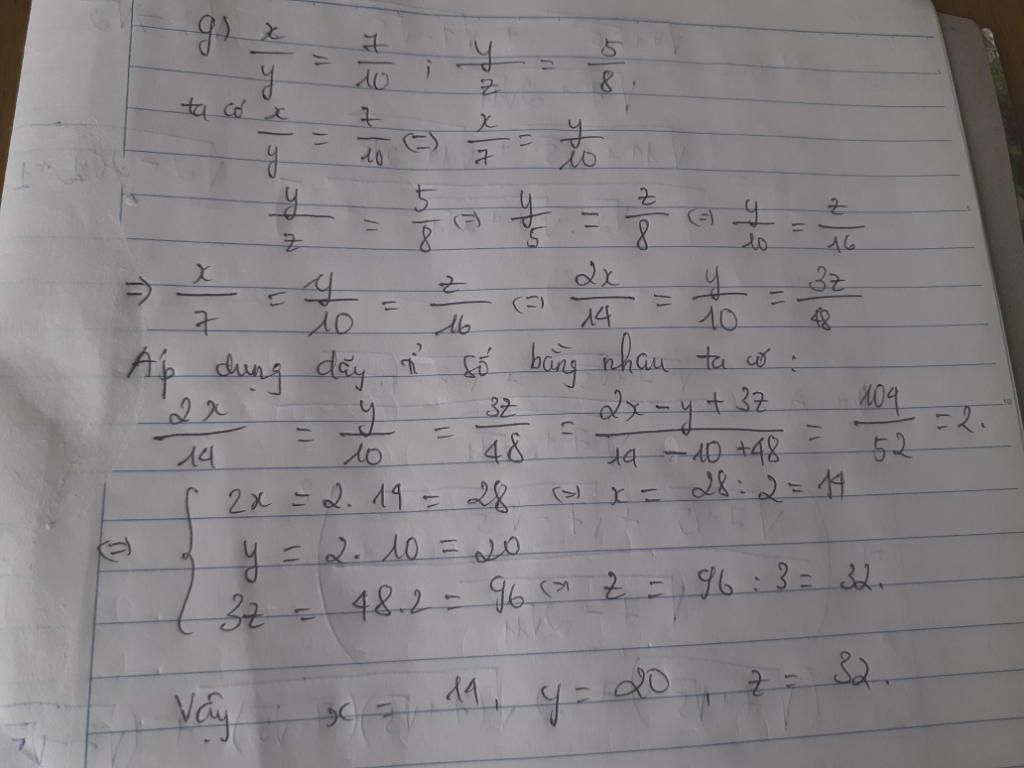 g) x/y = 7/10 ; y/z = 5/8.
ta có x/y = 7/10 (=) x/7 = y/10
y/z = 5/8 (=) y/5 = z/8 (=) y/10 = z/16
=> x/7 = y/10 = z/16 (=) 2x/14 = y/10 = 3z/48
Áp dụng dãy tỉ số bằng nhau ta có :
2x/14 = y/10 = 3z/48 = (2x - y + 3z)/(14 - 10 + 48) = 104/52 = 2.
(=) { 2x = 2. 14 = 28 (=) x = 28 : 2 = 14
y = 2. 10 = 20
3z = 48.2 = 96 (=) z = 96 : 3 = 32.
Vậy x = 14, y = 20, z = 32.